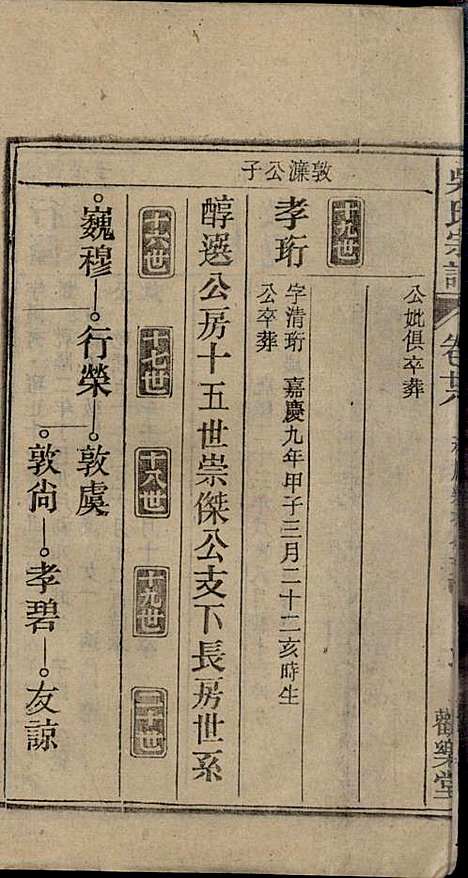 吳氏宗譜
卷廿六
觀樂堂
公妣俱卒葬
十九世
敦濂公子
孝珩
字清珩 嘉慶九年甲子三月二十二亥時生
公卒葬
醇選公房十五世崇傑公支下長房世系
十六世 十七世 十八世 十九世 二十世
巍穆 行榮 敦虞
敦尙 孝碧 友諒